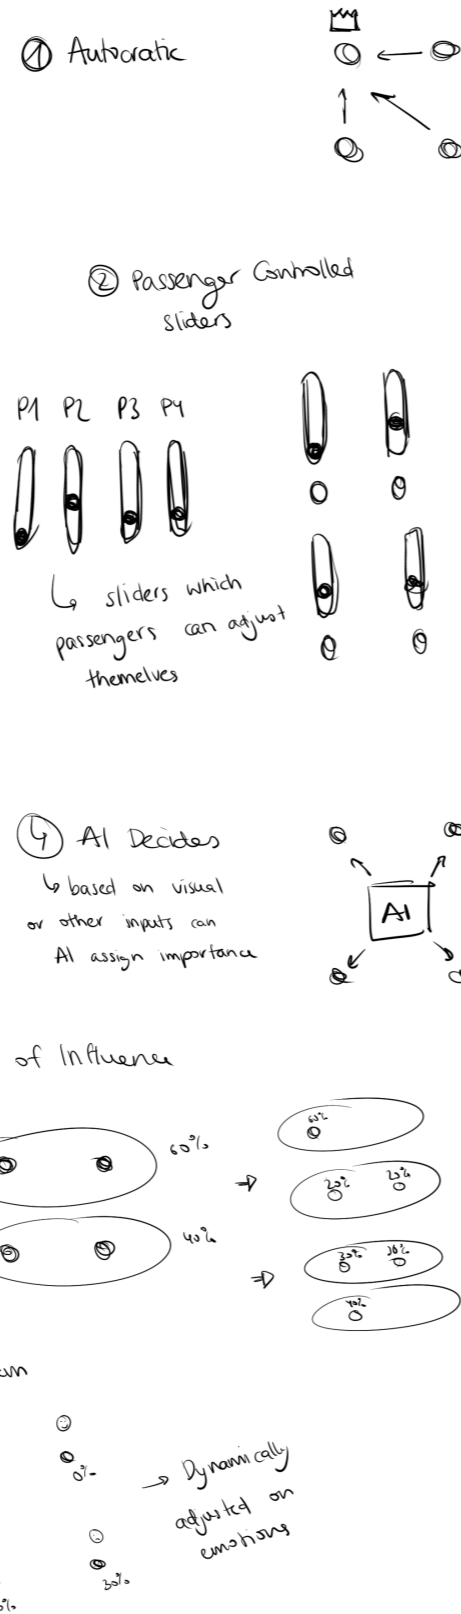 ① Autocratic
② Passenger Controlled
sliders
P1 P2 P3 P4
↳ sliders which
passengers can adjust
themelves
④ AI Decides
↳ based on visual
or other inputs can
AI assign importance
AI
of Influence
60%
60%
20% 20%
40%
30% 10%
40%
0%
→ Dynamically
adjusted on
emotions
30%